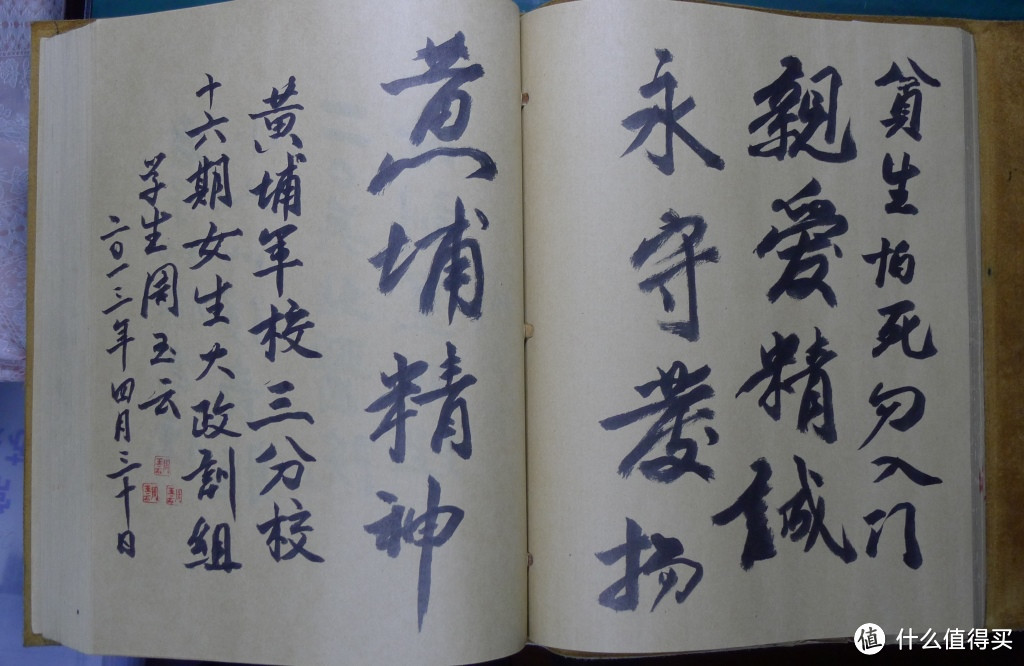 貪生怕死勿入门
親愛精誠
永守發揚
黄埔精神
黄埔军校三分校
十六期女生大政訓組
学生周玉云
二〇一三年四月三十日
值 什么值得买